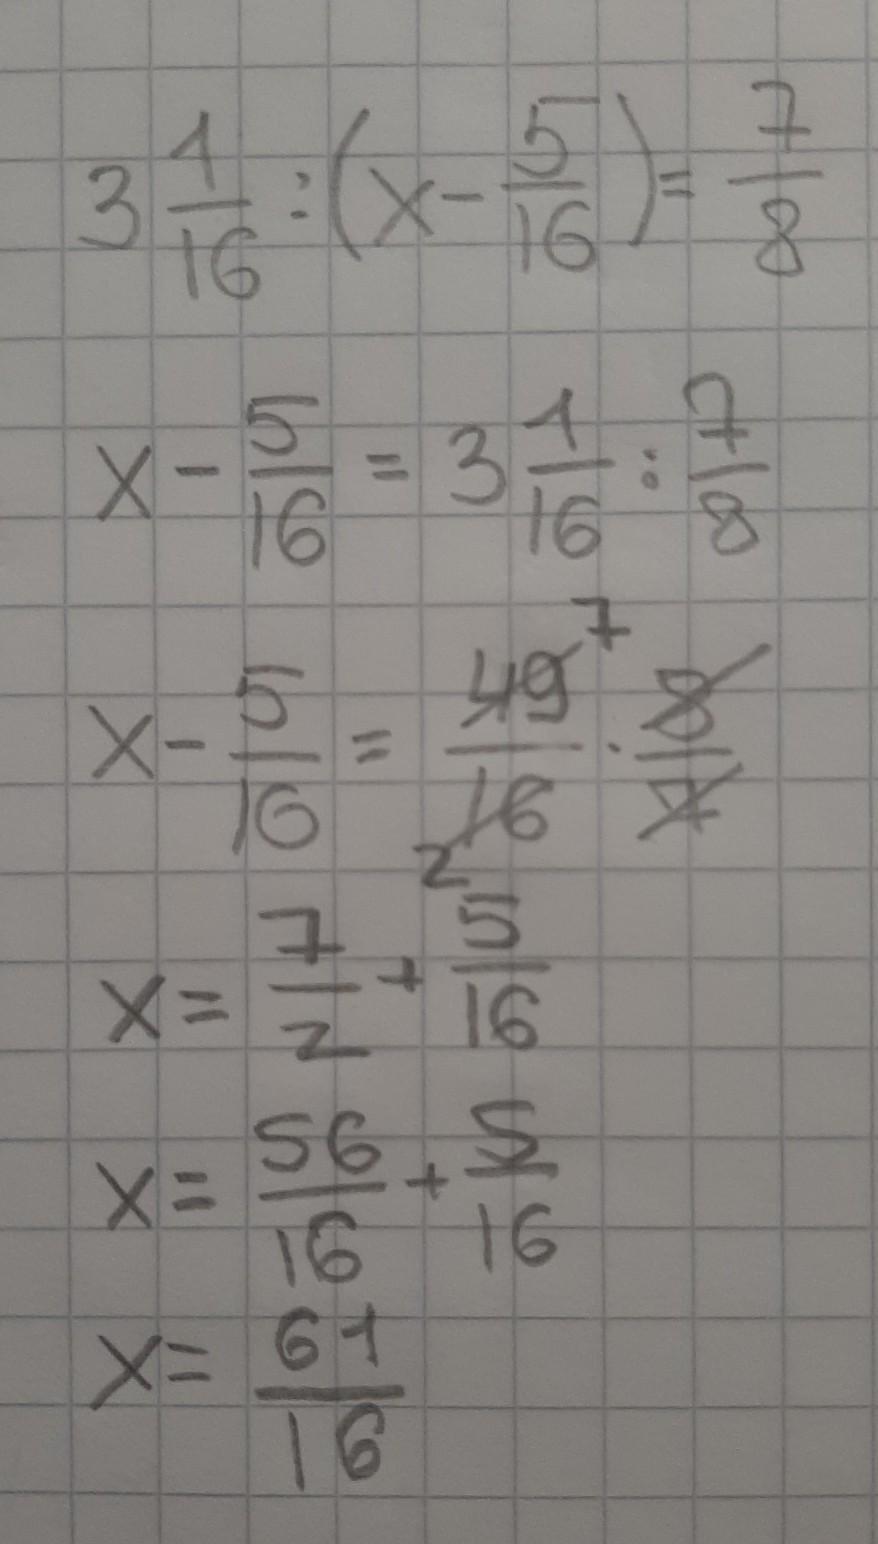 3 1/16 : (x - 5/16) = 7/8
x - 5/16 = 3 1/16 : 7/8
x - 5/16 = 49/16 7 2 · 8/7
x = 7/2 + 5/16
x = 56/16 + 5/16
x = 61/16